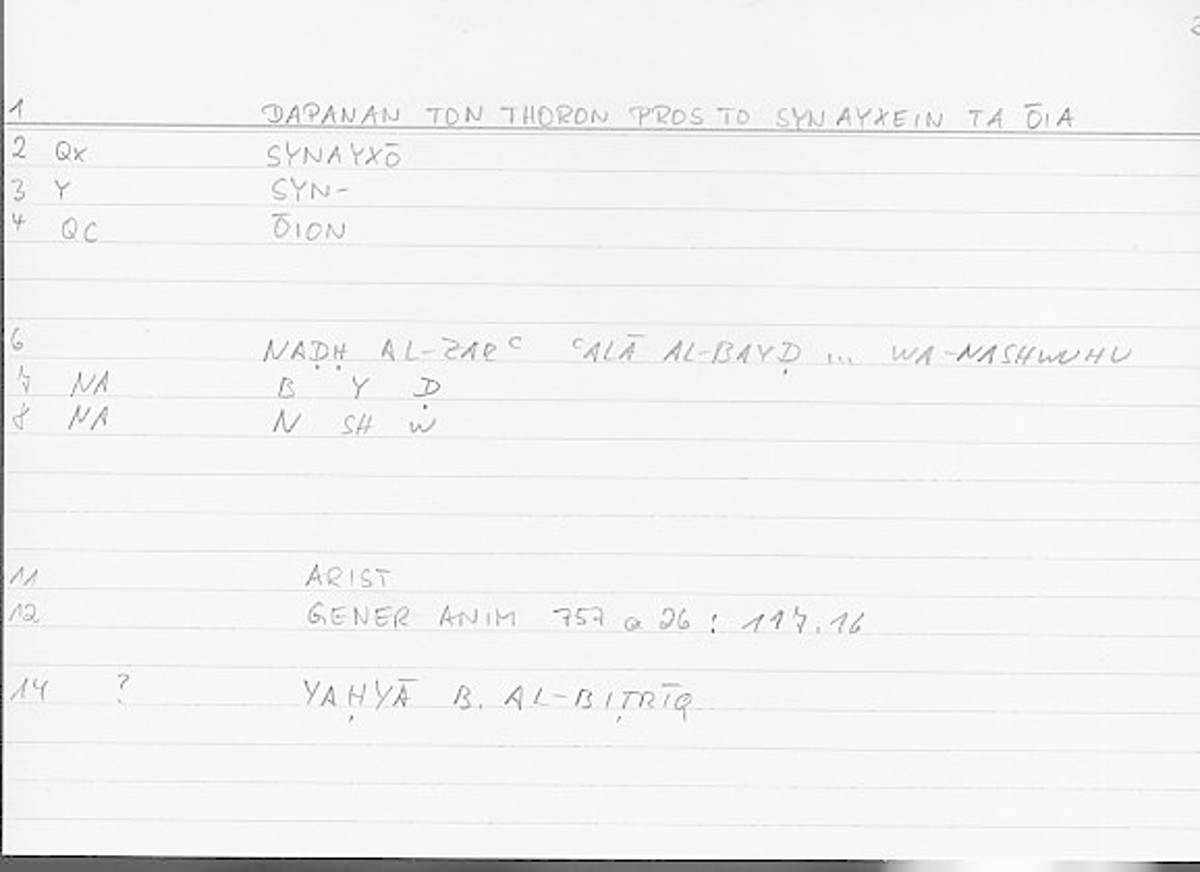 1 DAPANAN TON THORON PROS TO SYNAYXEIN TA ŌIA
2 Qx SYNAYXŌ
3 Y SYN-
4 QC ŌION
6 NAḌḤ AL-ZARʿ ʿALĀ AL-BAYḌ ... WA-NASHWUHU
7 NA B Y Ḍ
8 NA N SH W
11 ARIST
12 GENER ANIM 757 a 26 : 117.16
14 ? YAḤYĀ B. AL-BIṬRĪQ